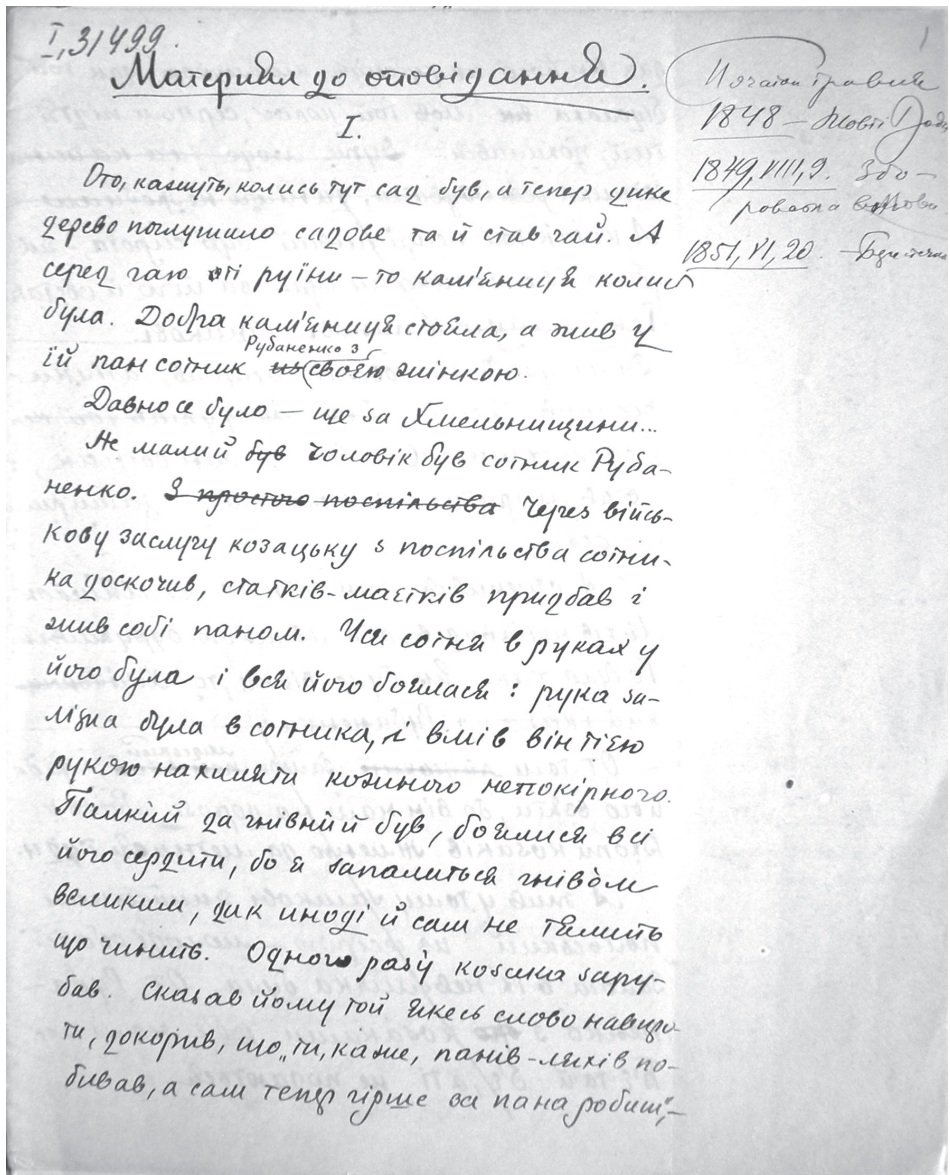 I,31499.
1
Матеріял до оповідання.
I.
Ото, кажуть, колись тут сад був, а тепер дике
дерево поглушило садове та й став гай. А
серед гаю оті руїни – то кам'яниця колись
була. Добра кам'яниця стояла, а жив у
їй пан сотник из Рубаненко з своєю жінкою.
Давно се було – ще за Хмельнищини...
Не малий був чоловік був сотник Руба-
ненко. З простого поспільства Через війсь-
кову заслугу козацьку з поспільства сотни-
ка доскочив, статків-маєтків придбав і
жив собі паном. Уся сотня в руках у
його була і вся його боялася: рука за-
лізна була в сотника, і вмів він тією
рукою нахиляти кожного непокірного.
Палкий да гнівний був, боялися всі
його сердити, бо як запалиться гнівом
великим, дак иноді й сам не тямить
що чинить. Одного разу козака зару-
бав. Сказав йому той якесь слово навпро-
ти, докорив, що „ти, каже, панів-ляхів по-
бивав, а сам тепер гірше за пана робиш", –
Початок травня
1848 – Жовті Води
1849, VIII, 9. Збо-
ровська
1851, VI, 20. – Берестечко